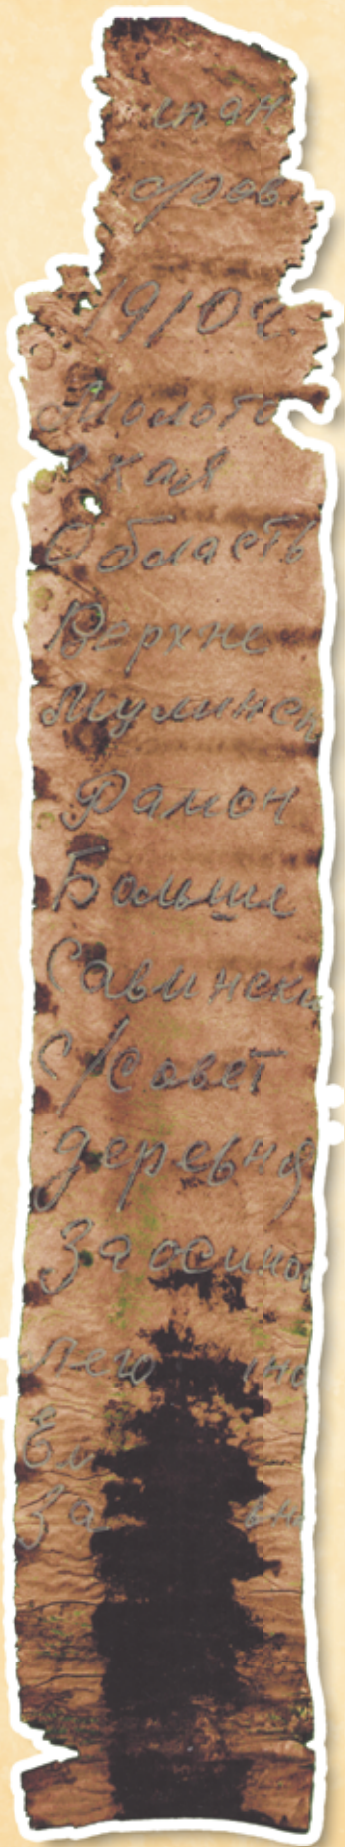 1910г.
Молото
ская
Область
Верхне
Мулинск
Район
Больше
Савински
с/совет
деревня
Заосино
Ел
За